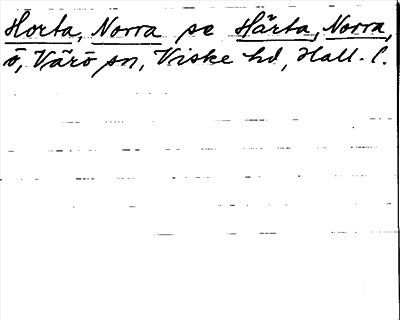 Horta, Norra se Hårta, Norra,
ö, Värö sn, Viske hd, Hall. l.